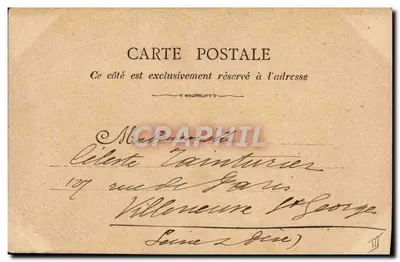 CARTE POSTALE
Ce côté est exclusivement réservé à l'adresse
CPAPHIL
Céleste Tainturier
rue de Paris
Villeneuve St Georges
(Seine & Oise)
III